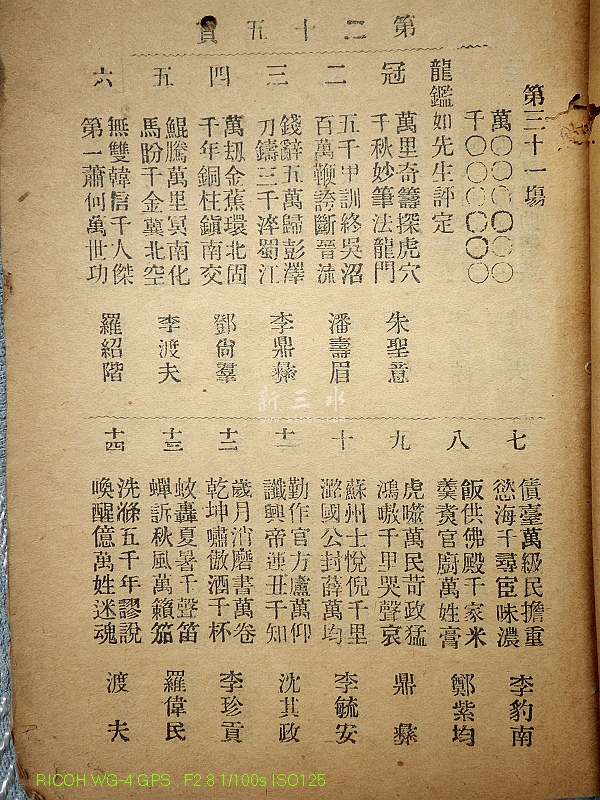 第二十五頁
第三十一場
萬〇〇〇〇〇〇
千〇〇〇〇〇〇
龍鑑如先生評定
冠
萬里奇籌探虎穴
千秋妙筆法龍門
朱聖意
二
五千甲訓終吳沼
百萬鞭誇斷晉流
潘壽眉
三
錢辭五萬歸彭澤
刀鑄三千淬蜀江
李鼎彝
四
萬刼金蕉環北固
千年銅柱鎮南交
鄧尙羣
五
鯤騰萬里冥南化
馬盼千金冀北空
李渡夫
六
無雙韓信千人傑
第一蕭何萬世功
羅紹階
七
債臺萬級民擔重
慾海千尋宦味濃
李豹南
八
飯供佛殿千家米
羹賚官廚萬姓膏
鄭紫均
九
虎噬萬民苛政猛
鴻嗷千甲哭聲哀
鼎彝
十
蘇州士悅倪千里
潞國公封薛萬均
李毓安
十一
勤作官方盧萬仰
讖興帝運丑千知
沈其政
十二
歲月消磨書萬卷
乾坤嘯傲酒千杯
李珍貢
十三
蚊轟夏暑千聲笛
蟬訴秋風萬籟笳
羅偉民
十四
洗滌五千年謬說
喚醒億萬姓迷魂
渡夫
新三水
RICOH WG-4 GPS , F2.8 1/100s ISO125